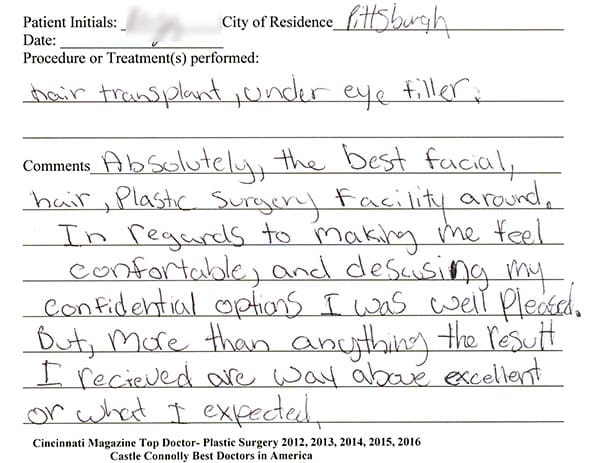 Patient Initials: City of Residence Pittsburgh
Date:
Procedure or Treatment(s) performed:
hair transplant, under eye filler.
Comments Absolutely, the best facial,
hair, Plastic Surgery Facility around.
In regards to making me feel
confortable, and descusing my
confidential options I was well pleased.
But, more than anything the result
I recieved are way above excellent
or what I expected.
Cincinnati Magazine Top Doctor- Plastic Surgery 2012, 2013, 2014, 2015, 2016
Castle Connolly Best Doctors in America